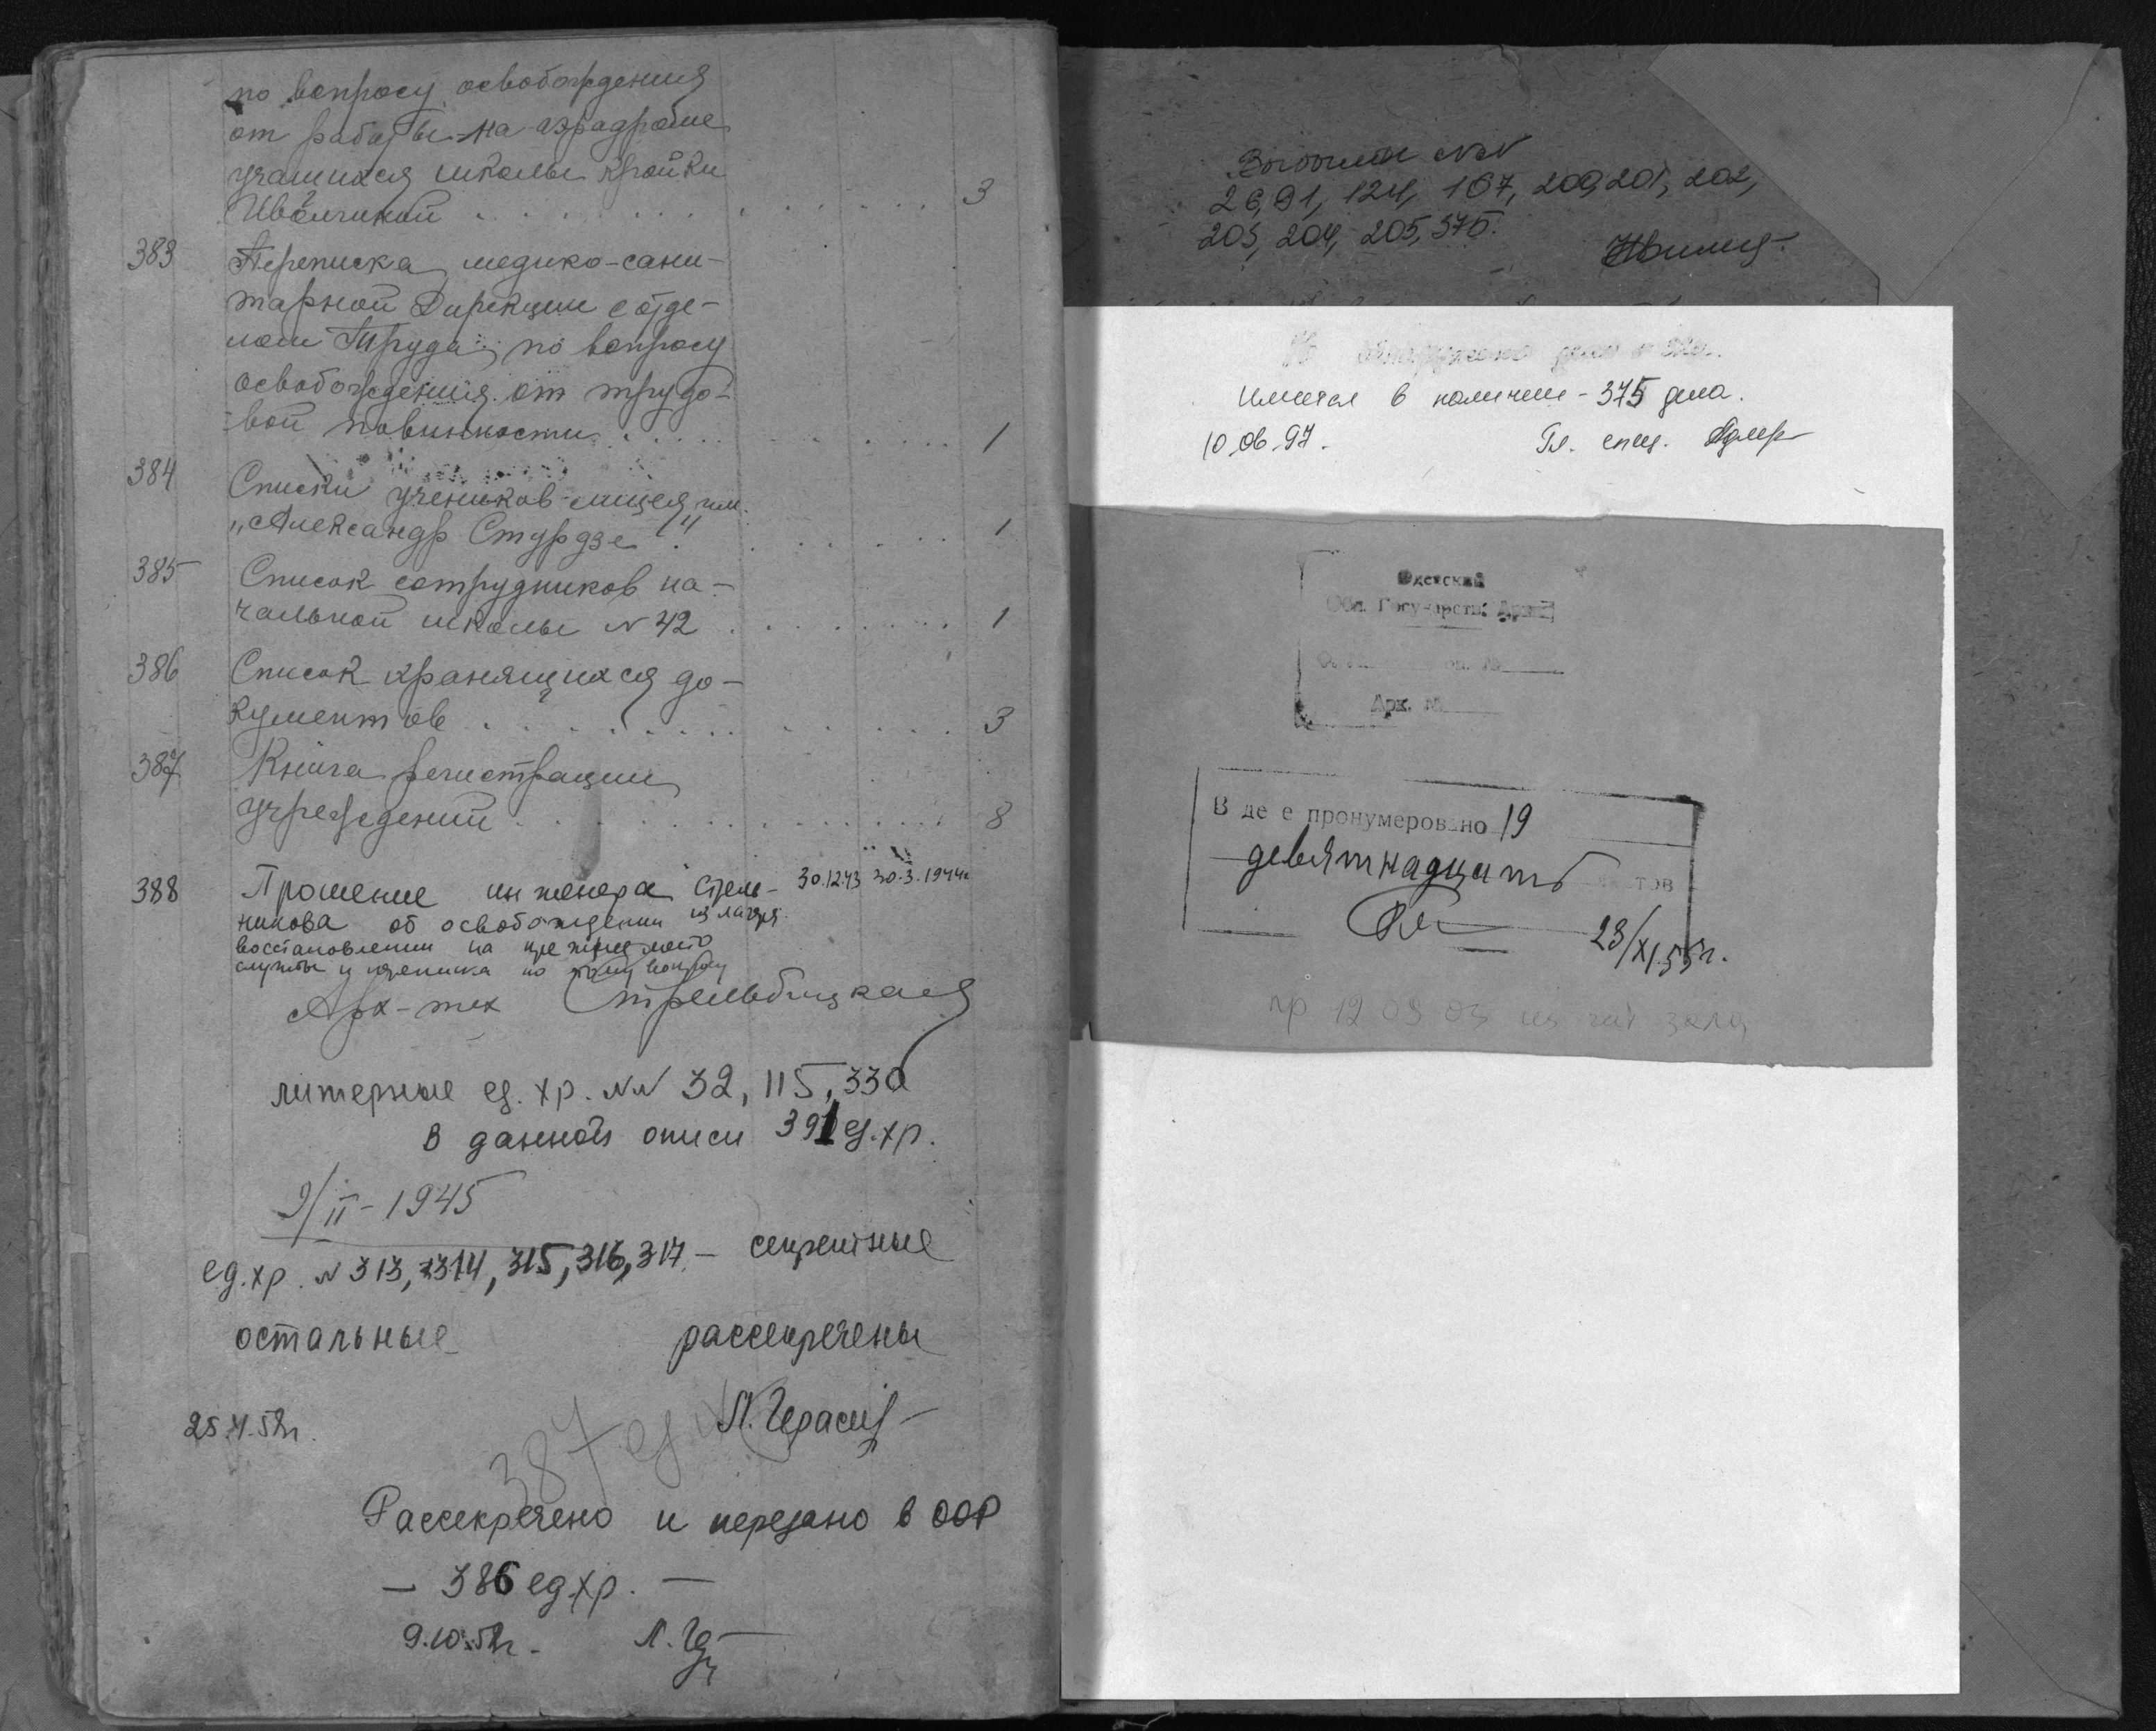 по вопросу освобождения
от работы на аэродроме
учащихся школы кройки
3
383 Переписка медико-сани-
тарной Дирекции с отде-
лом Труда, по вопросу
освобождения от трудо-
вой повинности 1
384 Списки учеников лицея им.
„Александр Стурдзе" 1
385 Список сотрудников на-
чальной школы N 42 1
386 Список хранящихся до-
кументов 3
387 Книга регистрации
учреждений 8
388 Прошение инженера Стель- 30.12.43 30.3.1944г
никова об освобождении из лагеря
восстановлении на прежнее место
службы и переписка по этому вопросу
Арх-тех Стрельбицкая
литерные ед. хр. NN 32, 115, 330
В данной описи 391 ед. хр.
9/II-1945
ед. хр. N 313, 314, 315, 316, 317 - секретные
остальные рассекречены
387 ед
Рассекречено и передано в ООФ
— 386 ед хр. —
Выбыли NN
26, 91, 124, 167, 200, 201, 202,
203, 204, 205, 375.
Имеется в наличии - 375 дела.
10.06.97. Гл. спец.
Одесский
Обл. Государств. Архив
оп. №
Арк. №
В деле пронумеровано 19
девятнадцать листов
23/XI.55г.